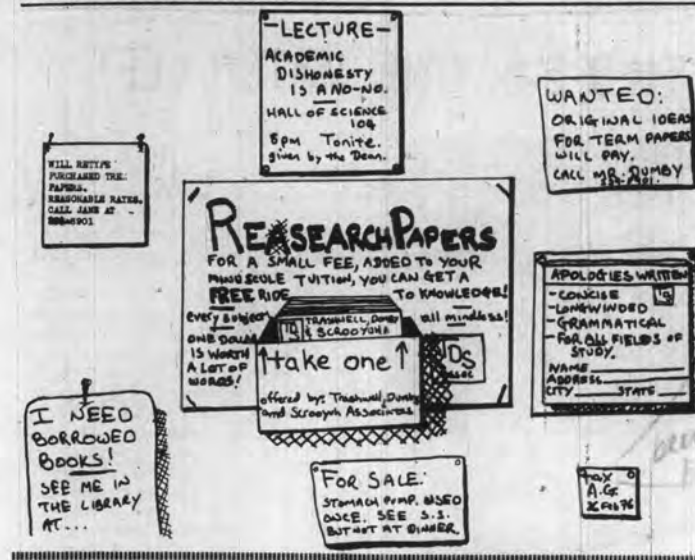 -LECTURE-
ACADEMIC
DISHONESTY
IS A NO-NO.
HALL OF SCIENCE
104
8pm Tonite.
given by the Dean.
WANTED:
ORIGINAL IDEAS
FOR TERM PAPERS
WILL PAY.
CALL MR. DUMBY
WILL RETYPE
PURCHASED
PAPERS.
REASONABLE RATES.
CALL JANE AT
REASEARCH PAPERS
FOR A SMALL FEE, ADDED TO YOUR
MINUSCULE TUITION, YOU CAN GET A
FREE RIDE TO KNOWLEDGE!
every subject all mindless!
TRASHWELL, DUMBY
& SCROOYUHA
ONE DOLLAR
IS WORTH
A LOT OF
WORDS!
↑take one↑
TDS
offered by: Trashwell, Dumby
and Scrooyuh Associates
APOLOGIES WRITTEN
-CONCISE
-LONGWINDED
-GRAMMATICAL
-FOR ALL FIELDS OF
STUDY.
NAME
ADDRESS
CITY STATE
I NEED
BORROWED
BOOKS!
SEE ME IN
THE LIBRARY
AT...
FOR SALE:
STOMACH PUMP. USED
ONCE. SEE S.S.
BUT NOT AT DINNER.
A.G.
26 Feb 76